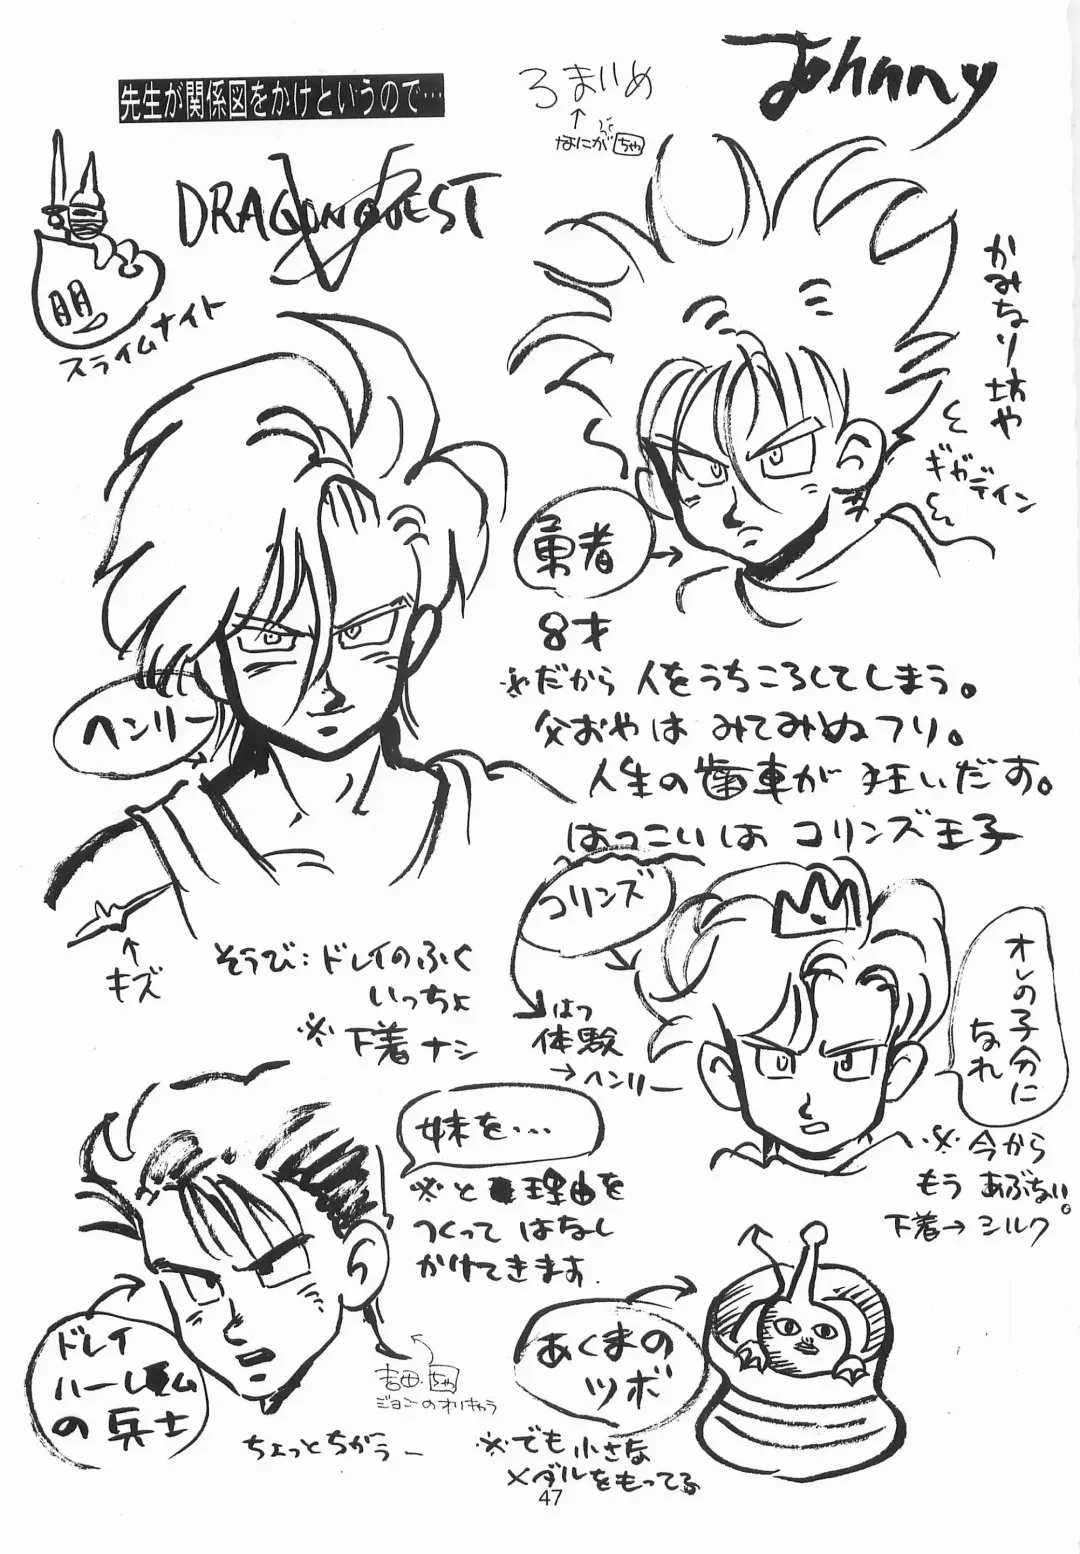 先生が関係図をかけというので…
Johnny
ろまいめ
↑
なにが ちゃ
DRAGON QUEST
V
スライムナイト
かみなり坊や
ギガデイン
勇者
8才
※だから 人をうちころしてしまう。
父おやは みてみぬフリ。
人生の歯車が 狂いだす。
はつこいは コリンズ王子
ヘンリー
↑
キズ
そうび:ドレイのふく
いっちょ
※ 下着ナシ
コリンズ
はつ
体験
→ヘンリー
オレの子分に
なれ
※今から
もう あぶない。
下着→シルク
妹を…
※と 理由を
つくって はなし
かけてきます.
ドレイ
ハーレムの
兵士
吉田 ちゃ
ジョニーのオリキャラ
ちょっとちがうー
あくまの
ツボ
※でも 小さな
メダルをもってる
47